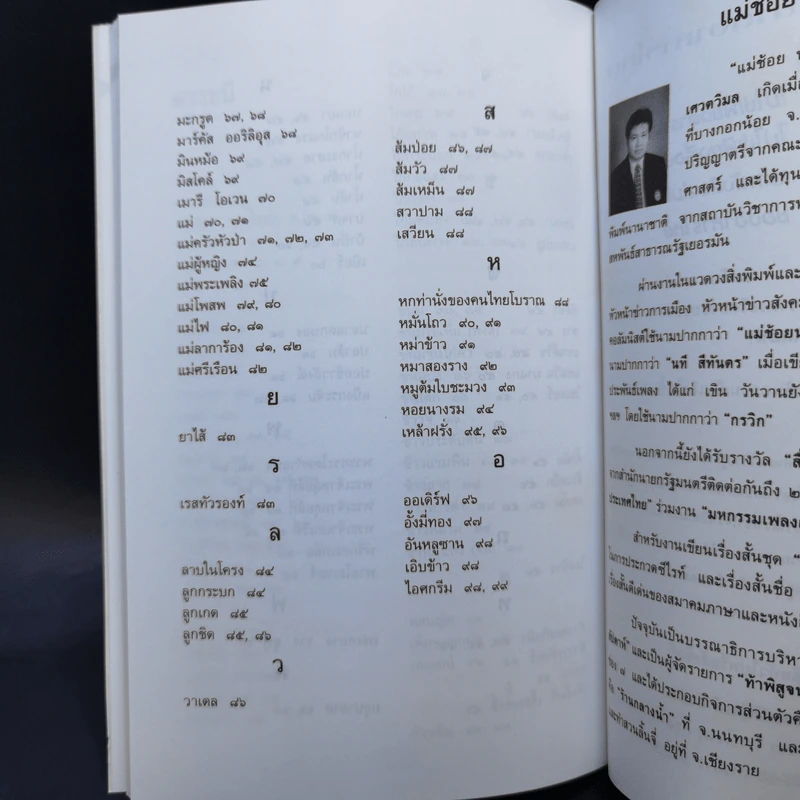 มะกรูด ๖๗, ๖๘
มาร์คัส ออริลิอุส ๖๘
มินหม้อ ๖๙
มิสโคล์ ๖๙
เมารี โอเวน ๗๐
แม่ ๗๐, ๗๑
แม่ครัวหัวป่า ๗๑, ๗๒, ๗๓
แม่ผู้หญิง ๗๔
แม่พระเพลิง ๗๕
แม่โพสพ ๗๙, ๘๐
แม่ไฟ ๘๐, ๘๑
แม่ลาการ้อง ๘๑, ๘๒
แม่ศรีเรือน ๘๒
ย
ยาไส้ ๘๓
ร
เรสทัวรองท์ ๘๓
ล
ลาบในโครง ๘๔
ลูกกระบก ๘๔
ลูกเกด ๘๕
ลูกชิด ๘๕, ๘๖
ว
วาเตล ๘๖
ส
ส้มป่อย ๘๖, ๘๗
ส้มวัว ๘๗
ส้มเหม็น ๘๗
สวาปาม ๘๘
เสวียน ๘๘
ห
หกท่านั่งของคนไทยโบราณ ๘๘
หมั่นโถว ๙๐, ๙๑
หม่าข้าว ๙๑
หมาสองราง ๙๒
หมูต้มใบชะมวง ๙๓
หอยนางรม ๙๔
เหล้าฝรั่ง ๙๕, ๙๖
อ
ออเดิร์ฟ ๙๖
อั้งมี่ทอง ๙๗
อันหลูซาน ๙๘
เอิบข้าว ๙๘
ไอศกรีม ๙๘, ๙๙
แม่ช้อย
"แม่ช้อย
เศวตวิมล เกิดเมื่อ
ที่บางกอกน้อย จ.
ปริญญาตรีจากคณะ
ศาสตร์ และได้ทุน
พิมพ์นานาชาติ จากสถาบันวิชาการ
สหพันธ์สาธารณรัฐเยอรมัน
ผ่านงานในแวดวงสิ่งพิมพ์และ
หัวหน้าข่าวการเมือง หัวหน้าข่าวสังคม
คอลัมนิสต์ใช้นามปากกาว่า "แม่ช้อย
นามปากกาว่า "นที สีทันดร" เมื่อเขีย
ประพันธ์เพลง ได้แก่ เขิน วันวานยัง
ฯลฯ โดยใช้นามปากกาว่า "กรวิก"
นอกจากนี้ยังได้รับรางวัล
จากสำนักนายกรัฐมนตรีติดต่อกันถึง ๒
ประเทศไทย" ร่วมงาน "มหกรรมเพลง
สำหรับงานเขียนเรื่องสั้นชุด "
ในการประกวดซีไรท์ และเรื่องสั้นชื่อ
เรื่องสั้นดีเด่นของสมาคมภาษาและหนังสือ
ปัจจุบันเป็นบรรณาธิการบริหาร
สัปดาห์" และเป็นผู้จัดรายการ "ท้าพิสูจน์
ช่อง ๗ และได้ประกอบกิจการส่วนตัวคือ
คือ "ร้านกลางน้ำ" ที่ จ.นนทบุรี และ
และทำสวนลิ้นจี่ อยู่ที่ จ.เชียงราย